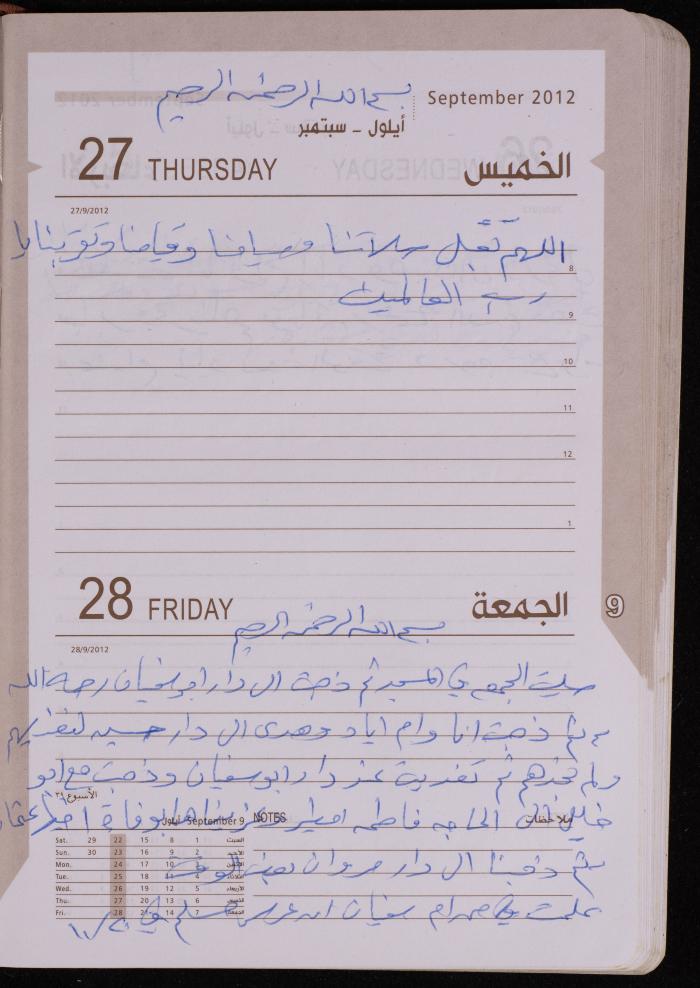 بسم الله الرحمن الرحيم
September 2012
أيلول - سبتمبر
27 THURSDAY الخميس
27/9/2012
اللهم تقبل صلاتنا وصيامنا وقيامنا وتوبتنا يا
8
رب العالمين
9
10
11
12
1
28 FRIDAY الجمعة
9
بسم الله الرحمن الرحيم
28/9/2012
صليت الجمعة في المسجد ثم ذهبت الى دار ابو سفيان رحمه الله
ثم ذهبت انا وام اياد وهدى الى دار حسين لنعزيهم
ولم نجدهم ثم تغديت عند دار ابو سفيان وذهبت مع ابو
الأسبوع ٣٩
خليل الى الحاجه فاطمه وعزيناها بوفاة اخيها
أيلول September 9 NOTES ملاحظات
Sat. 29 22 15 8 1 السبت
Sun. 30 23 16 9 2 الأحد
Mon. 24 17 10 3 الاثنين
Tue. 25 18 11 4 الثلاثاء
Wed. 26 19 12 5 الأربعاء
Thu. 27 20 13 6 الخميس
Fri. 28 21 14 7 الجمعة
ثم ذهبنا الى دار مروان الوقت
علمت من ام سفيان ان عرس في